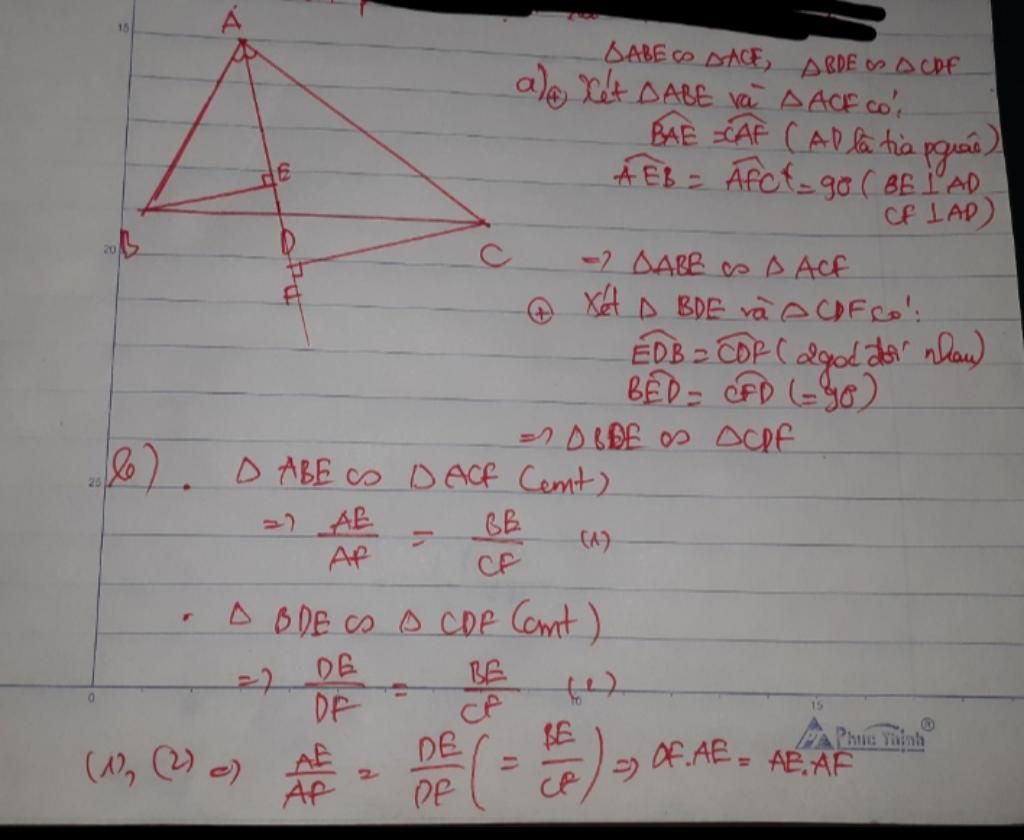 A
B
E
D
C
F
15
20
25
0
10
15
ΔABE ∽ ΔACF, ΔBDE ∽ ΔCDF
a) ⊕ Xét ΔABE và ΔACF có:
BAE = CAF (AD là tia pgiác)
AEB = AFC (= 90 (BE ⊥ AD
CF ⊥ AD)
=> ΔABE ∽ ΔACF
⊕ Xét Δ BDE và ΔCDF có:
EDB = CDF (2góc đối nhau)
BED = CFD (= 90)
=> ΔBDE ∽ ΔCDF
b) . Δ ABE ∽ Δ ACF (cmt)
=> AE/AF = BE/CF (1)
. Δ BDE ∽ Δ CDF (cmt)
=> DE/DF = BE/CF (2)
Phuc Thinh®
(1), (2) => AE/AF = DE/DF (= BE/CF) => DF.AE = AE.AF